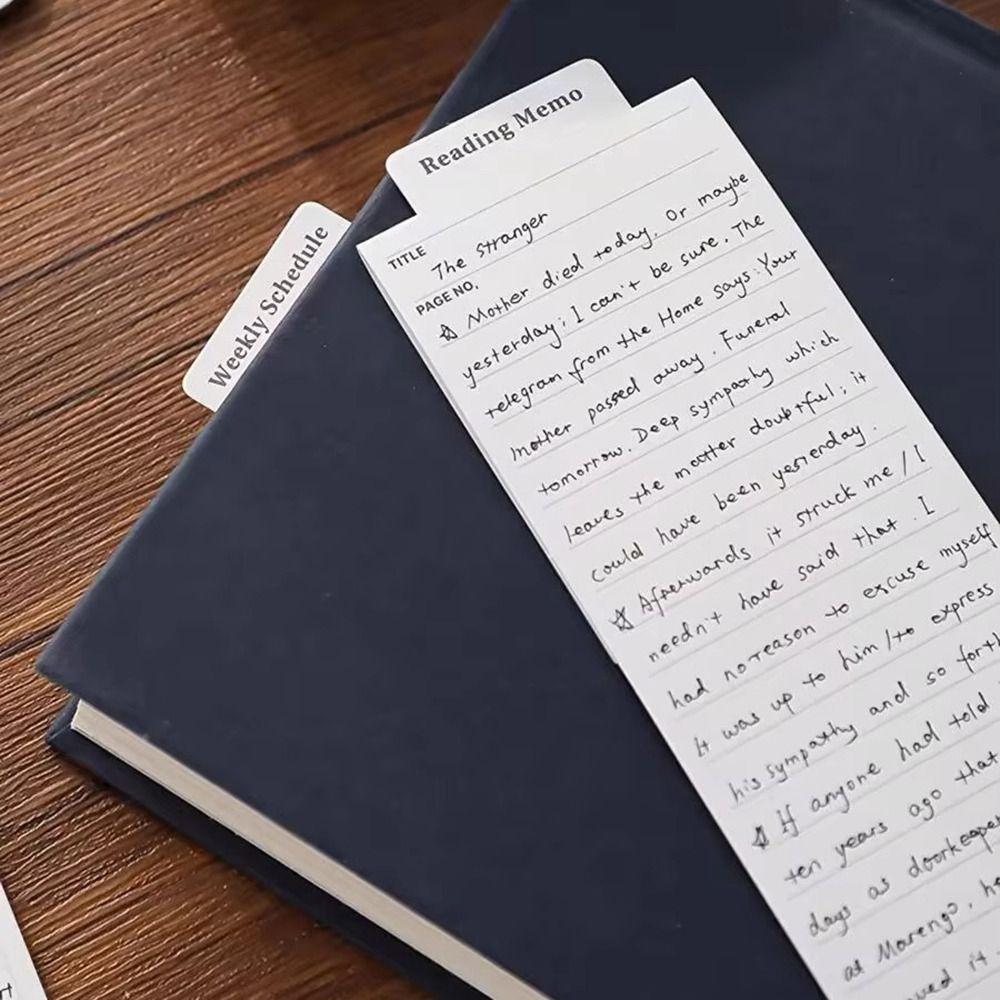 Reading Memo
Weekly Schedule
TITLE
The stranger
PAGE NO.
☆ Mother died today. Or maybe
yesterday; I can't be sure. The
telegram from the Home says: Your
mother passed away. Funeral
tomorrow. Deep sympathy which
leaves the matter doubtful; it
could have been yesterday.
☆ Afterwards it struck me / I
needn't have said that. I
had no reason to excuse myself
It was up to him / to express
his sympathy and so forth
☆ If anyone had told
ten years ago that
days as doorkeeper
at Marengo, he